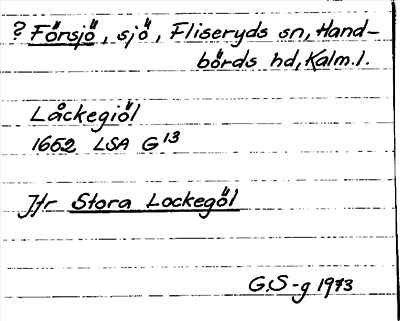 ? Försjö, sjö, Fliseryds sn, Hand-
börds hd, Kalm.l.
Låckegiöl
1652 LSA G 13
Jfr Stora Lockegöl
G.S-g 1973